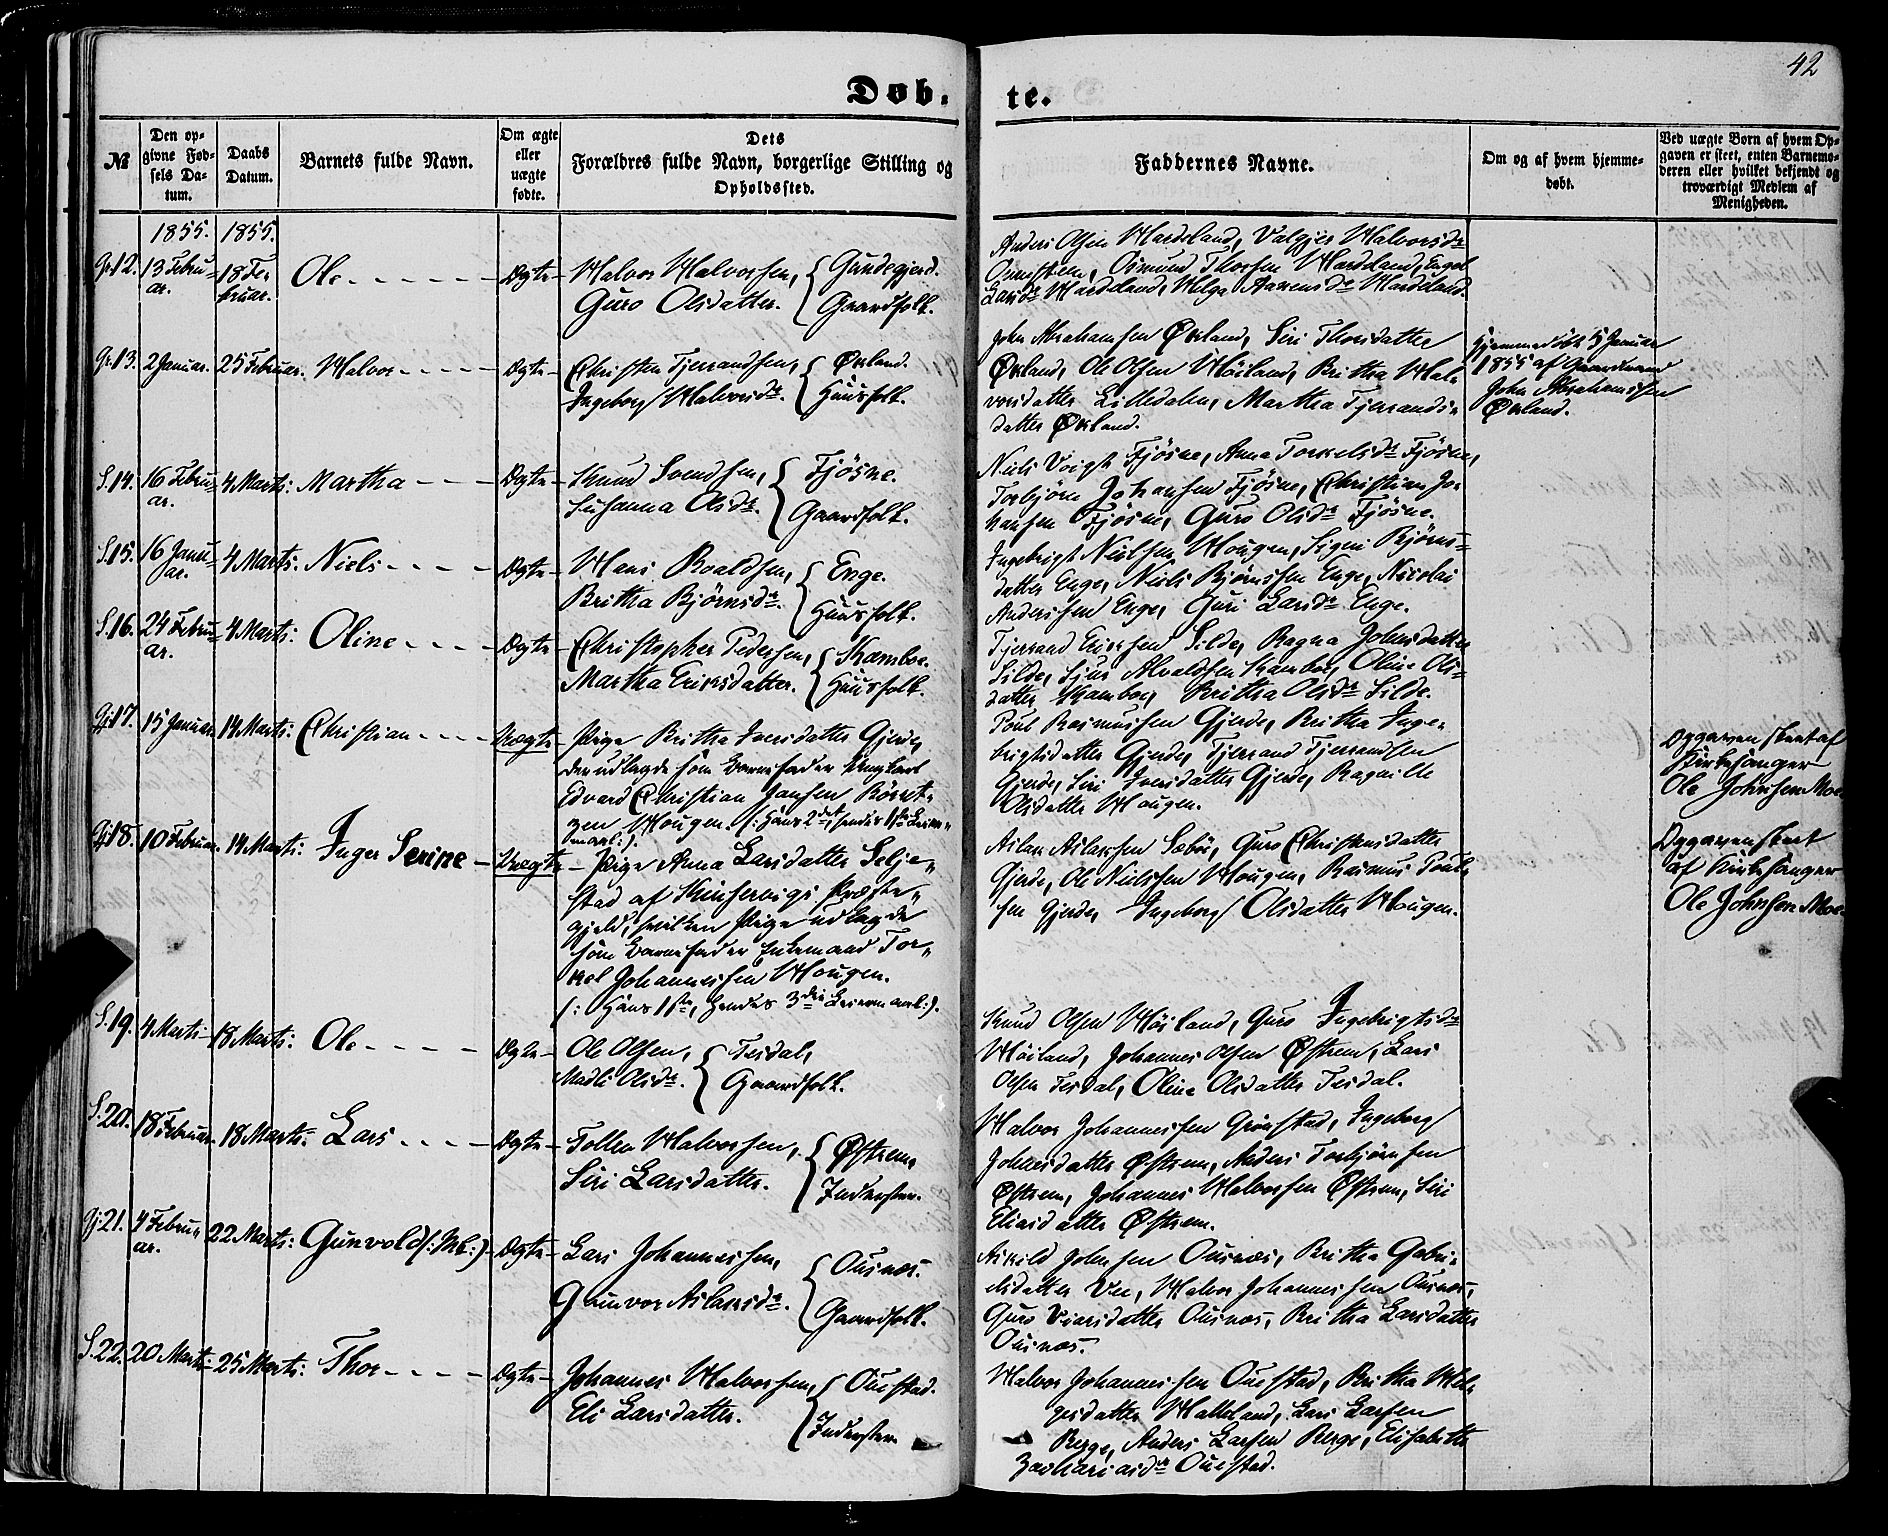 42
Døb. te.
№
Den op-
givne Fød-
sels Da-
tum.
Daabs
Datum.
Barnets fulde Navn.
Om ægte
eller
uægte
fødte.
Dets
Forældres fulde Navn, borgerlige Stilling og
Opholdssted.
Faddernes Navne.
Om og af hvem hjemme-
døbt.
Ved uægte Børn af hvem Op-
gaven er skeet, enten Barnemo-
deren eller hvilket bekjendt og
troværdigt Medlem af
Menigheden.
1855. 1855.
Gr. 12. 13 Febru-
ar. 18 Fe-
bruar. Ole Ægte
Halvor Halvorsen,
Guro Olsdatter.
Gundegjerd.
Gaardfolk.
Anders Olsen Hardeland, Valgjer Halvorsdr
Osmund Thorsen Hardeland, Engel
Larsdr Hardeland, Helga Hardeland.
Gr. 13. 2 Januar. 25 Februar. Halvor Ægte
Christen Tjerandsen,
Ingeborg Halvorsdr.
Ørland.
Huusfolk.
John Abrahamsen Ørland, Siri Thorsdatter
Ørland, Ole Olsen Høiland, Britha Hal-
vorsdatter Litledalen, Martha Tjerands-
datter Ørland.
Hjemmedøbt 5 Januar
1855 af Gaardmand
John Abrahamsen
Ørland.
S. 14. 16 Febru-
ar. 4 Marts: Martha Ægte
Knud Svendsen,
Susanna Olsdr.
Fjøsne.
Gaardfolk.
Niels Voigt Fjøsne, Anna Torkelsdr Fjøsne,
Torbjørn Johansen Fjøsne, Christian Jo-
hansen Fjøsne, Guro Olsdr Fjøsne.
S. 15. 16 Janu-
ar. 4 Marts. Niels Ægte
Hans Roaldsen,
Britha Bjørnsdr.
Enge.
Huusfolk.
Ingebrigt Nielsen Hougen, Signi Bjørns-
datter Enge, Niels Bjørnsen Enge, Nicolai
Andersen Enge, Guri Larsdr Enge.
S. 16. 24 Febru-
ar. 4 Marts: Oline Ægte
Christopher Pedersen,
Martha Eriksdatter.
Skamboe.
Huusfolk.
Tjerand Eriksen Silde, Ragna Johnsdatter
Silde, Sjur Skamboe, Oline Ols-
datter Skamboe, Britha Olsdr Silde.
Gj. 17. 15 Januar. 14 Marts: Christian Uægte
Pige Britha Iversdatter Gjerde,
der udlagde som Barnefader Ungkarl
Edvard Christian Jansen
Hougen. (: Hans 2det, hendes 1ste Leier-
maal:).
Poul Rasmussen Gjerde, Britha Inge-
brigtsdatter Gjerde, Tjerrand Tjerrandsen
Gjerde, Siri Iversdatter Gjerde, Ragnille
Olsdatter Hougen.
Opgaven skeet af
Kirkesanger
Ole Johnsen Moe.
Gj. 18. 10 Februar. 14 Marts: Inger Serine Uægte
Pige Anna Larsdatter Selje-
stad af Kinservigs Præste-
gjeld, hvilken Pige udlagde
som Barnefader Enkemand Tor-
kel Johannesen Hougen.
(: Hans 1ste, hendes 3die Leiermaal:).
Aslak Aslaksen Sæbøe, Guro Christensdatter
Gjerde, Ole Nielsen Hougen, Rasmus Poul-
sen Gjerde, Ingeborg Olsdatter Hougen.
Opgaven skeet
af Kirkesanger
Ole Johnsen Moe.
S. 19. 4 Marts 18 Marts: Ole Ægte
Ole Olsen,
Madli Olsdr.
Tesdal,
Gaardfolk.
Knud Olsen Høiland, Guro Ingebrigtsdr
Høiland, Johannes Olsen Østrem, Lars
Olsen Tesdal, Oline Olsdatter Tesdal.
S. 20. 18 Februar. 18 Marts: Lars Ægte
Tollev Halvorsen,
Siri Larsdatter.
Østrem,
Inderster.
Halvor Johannesen Grindstad, Ingeborg
Johnesdatter Østrem, Anders Torbjørnsen
Østrem, Johannes Halvorsen Østrem, Siri
Eliasdatter Østrem.
Gj. 21. 4 Febru-
ar. 22 Marts: Gunvold (: Mb:) Ægte
Lars Johannesen,
Gunvor Aslaksdr.
Ousnæs.
Gaardfolk.
Askild Johnsen Ousnæs, Britha Gabri-
elsdatter Vee, Halvor Johannesen Ousnæs,
Guro Ousnæs, Britha Larsdatter
Ousnæs.
S. 22. 20 Marts: 25 Marts: Thor Ægte
Johannes Halvorsen,
Eli Larsdatter.
Ouestad.
Inderster.
Halvor Johannesen Ouestad, Britha Hel-
gesdatter Hatteland, Lars Larsen
Berge, Anders Larsen Berge, Elisabeth
Zachariasdr Ouestad.